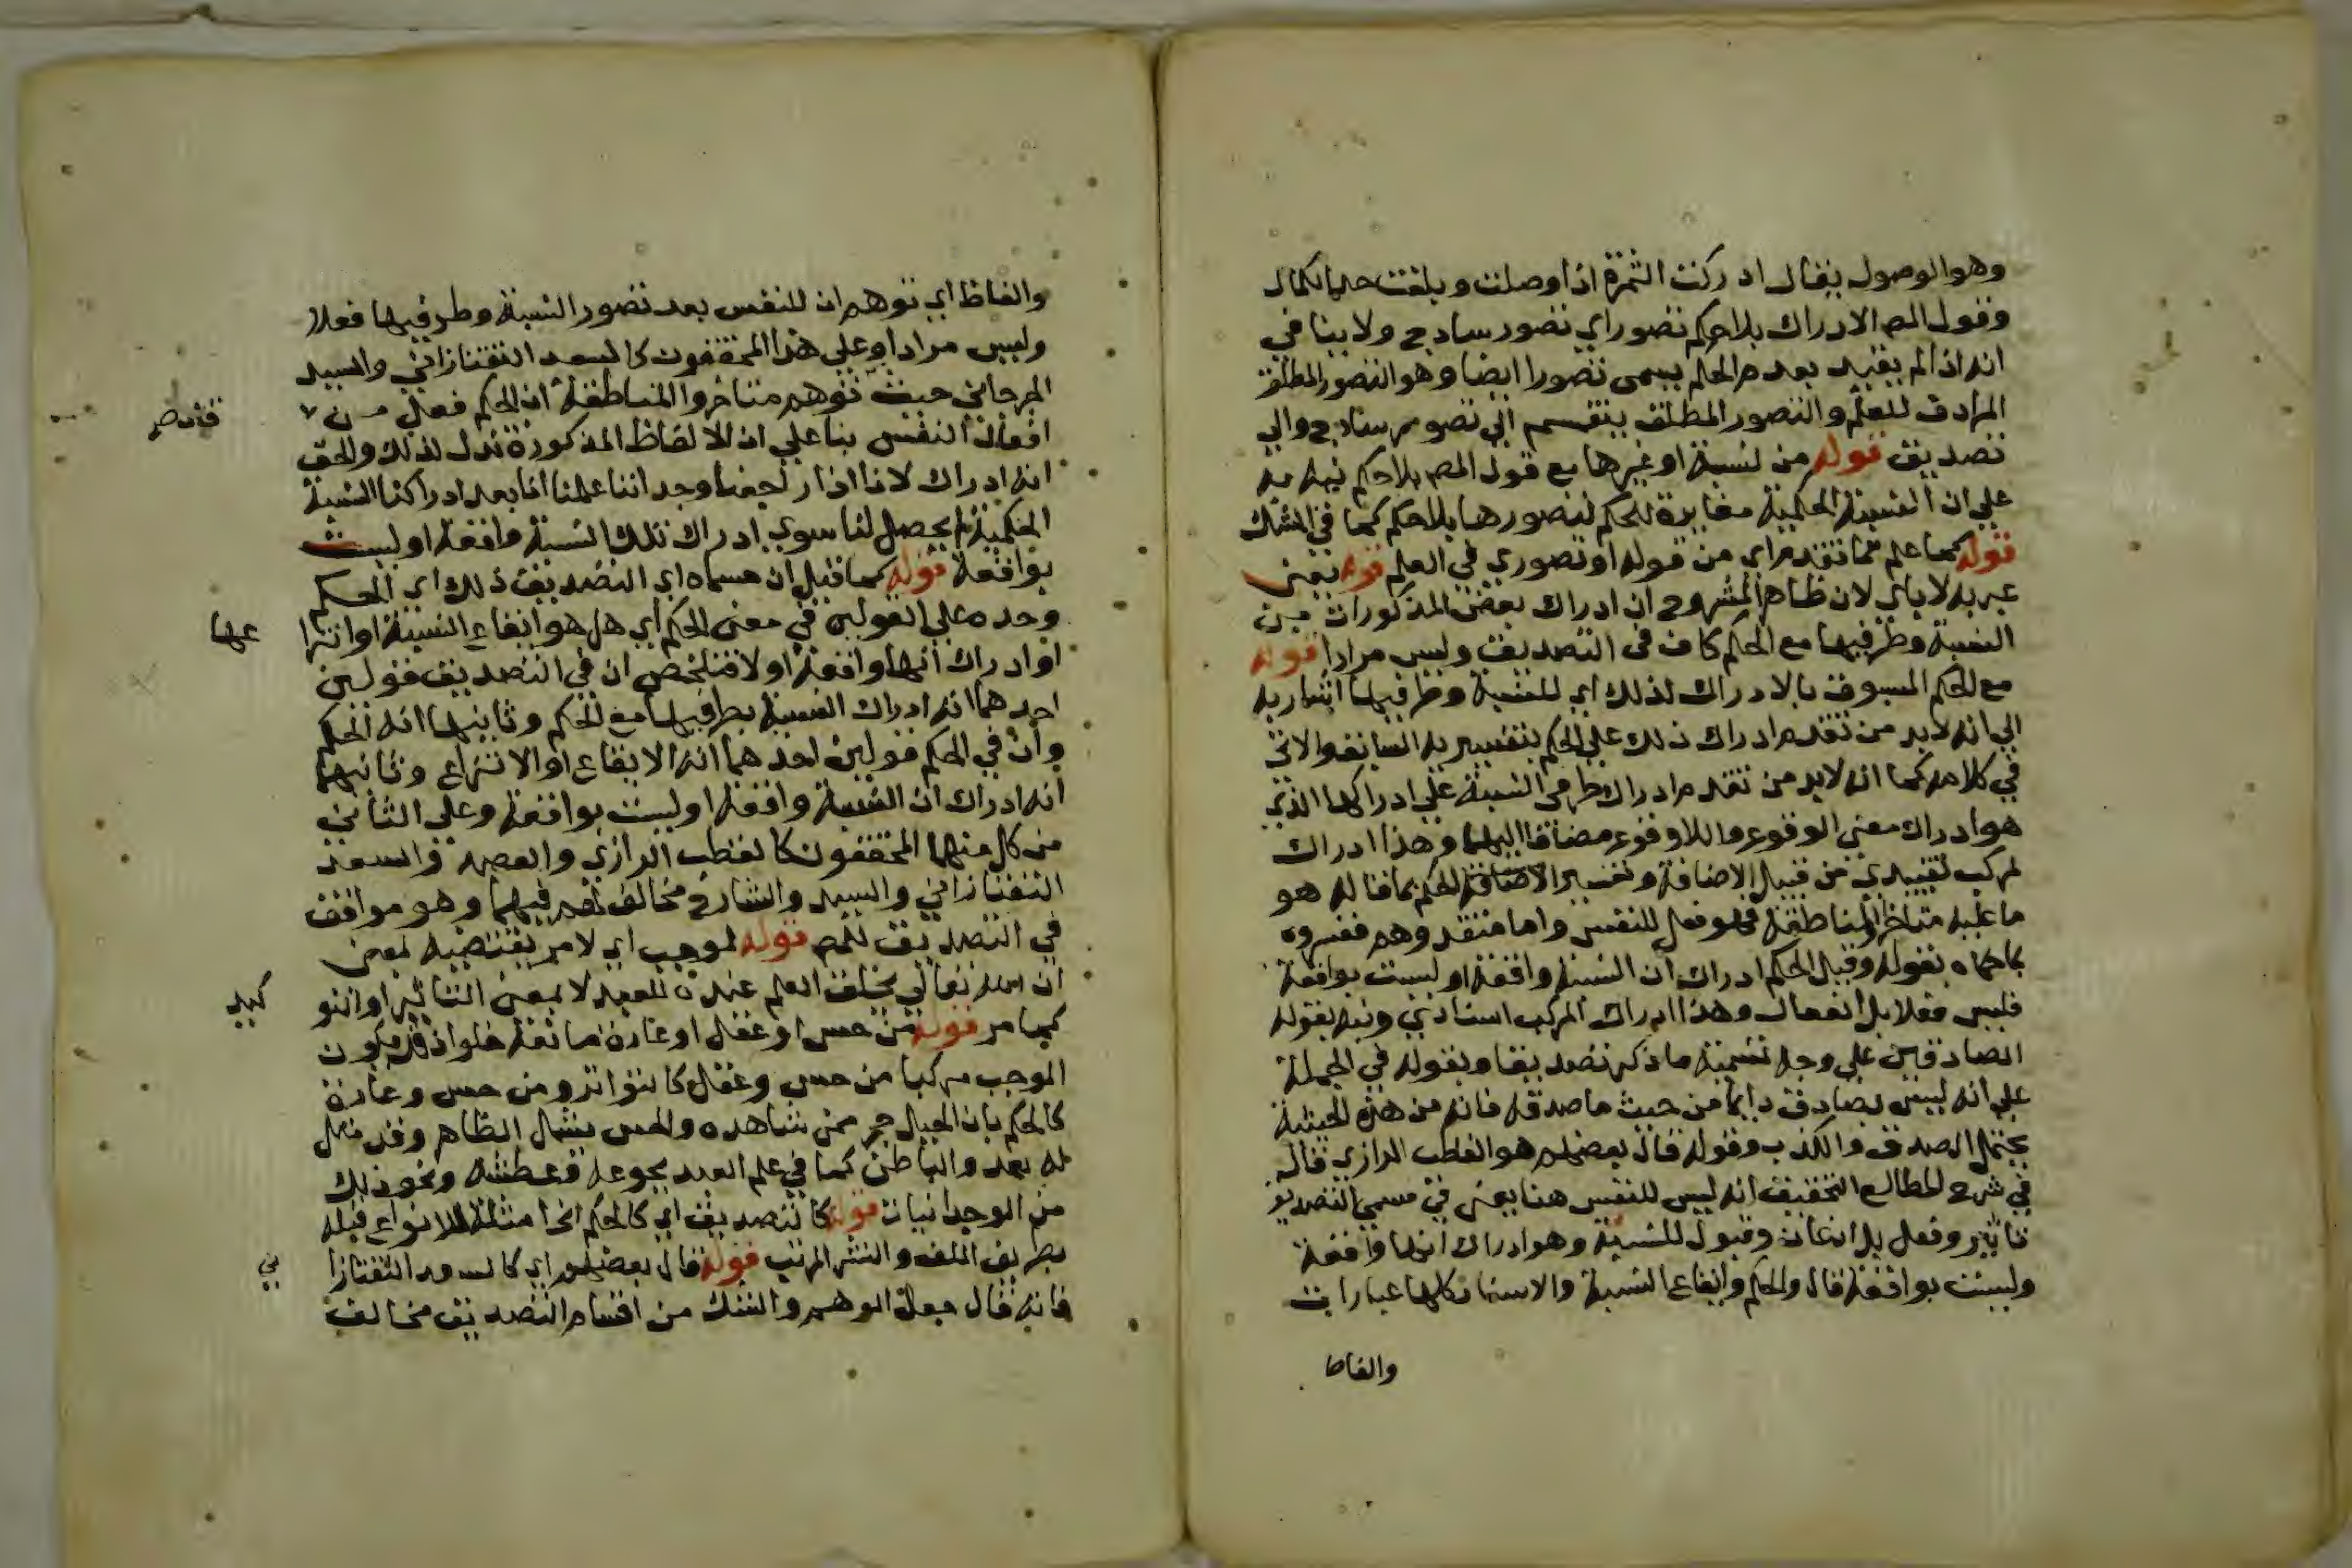 وهو الوصول يقال ادركت الثمرة اذا وصلت وبلغت حد الكمال
وقول المص الادراك بلا حكم تصور اي تصور ساذج ولا ينافي
انه اذا لم يقيد بعدم الحكم يسمى تصورا ايضا وهو التصور المطلق
المرادف للعلم والتصور المطلق ينقسم الي تصور ساذج والي
تصديق قوله من نسبة او غيرها مع قول المص بلا حكم نبه به
علي ان النسبة الحكمية مغايرة للحكم لتصورها بلا حكم كما في الشك
قوله كما علم مما تقدم اي من قوله او تصوري في العلم قوله يعني
عبر به لا باي لان ظاهر المشروح ان ادراك بعض المذكورات من
النسبة وطرفيها مع الحكم كاف في التصديق وليس مرادا قوله
مع الحكم المسبوق بالادراك لذلك اي للنسبة وطرفيها اشار به
الي انه لابد من تقدم ادراك ذلك علي الحكم بتفسيريه السابق والاتي
في كلامه كما انه لابد من تقدم ادراك طرفي النسبة علي ادراكها الذي
هو ادراك معني الوقوع واللاوقوع مضافا اليهما وهذا ادراك
لمركب تقييدي من قبيل الاضافة وتفسير الاضافة للحكم بما قاله هو
ما عليه متاخرو المناطقة فهو فعل للنفس واما متقدموهم ففسروه
بما حكاه بقوله وقيل الحكم ادراك ان النسبة واقعة او ليست بواقعة
فليس فعلا بل انفعال وهذا ادراك المركب اسنادي ونبه بقوله
الصادقين علي وجه تسمية ما ذكر تصديقا وبقوله في الجملة
علي انه ليس بصادق دايما من حيث ما صدقه فانه من هذه الحيثية
يحتمل الصدق والكذب وقوله قال بعضهم هو القطب الرازي قال
في شرح المطالع التحقيق انه ليس للنفس هنا يعني في مسمي التصديق
تاثير وفعل بل اذعان وقبول للنسبة وهو ادراك انها واقعة
وليست بواقعة قال والحكم وايقاع النسبة والاسناد كلها عبارات
والفاظ
والفاظ اي توهم ان للنفس بعد تصور النسبة وطرفيها فعلا
وليس مرادا وعلي هذا المحققون كالسعد التفتازاني والسيد
الجرجاني حيث توهم متاخروا المناطقة ان الحكم فعل من
افعال النفس بنا علي ان الالفاظ المذكورة تدل لذلك والحق
انه ادراك لانا اذا رجعنا وجداننا علمنا انا بعد ادراكنا النسبة
الحكمية لم يحصل لنا سوي ادراك تلك النسبة واقعة او ليست
بواقعة قوله كما قيل ان مسماه اي التصديق ذلك اي الحكم
وحده علي القولين في معني الحكم اي هل هو ايقاع النسبة او انتزا
عها
او ادراك انها واقعة او لا فتلخص ان في التصديق قولين
احدهما انه ادراك النسبة بطرفيها مع الحكم وثانيهما انه الحكم
وان في الحكم قولين احدهما انه الايقاع او الانتزاع وثانيهما
انه ادراك ان النسبة واقعة او ليست بواقعة وعلي الثاني
من كل منهما المحققون كالقطب الرازي والعضد والسعد
التفتازاني والسيد والشارح مخالف لهم فيهما وهو موافق
في التصديق للمص قوله لموجب اي لامر يقتضيه لمعني
ان الله تعالي يخلق العلم عنده للعبد لا بمعني التاثير او التو
كيد
كما مر قوله من حس او عقل او عادة مانعة خلو اذ قد يكون
الموجب مركبا من حس وعقل كالتواتر ومن حس وعادة
كالحكم بان الجبال حجر ممن شاهده والحس يشمل الظاهر وقد مثل
له بعد والباطن كما في علم العبد بجوعه وعطشه ونحو ذلك
من الوجدانيات قوله كالتصديق اي كالحكم الخ امثلة للانواع قبله
بطريق اللف والنشر المرتب قوله قال بعضهم اي كالسعد التفتازا
ني
فانه قال جعل الوهم والشك من اقسام التصديق مخالف